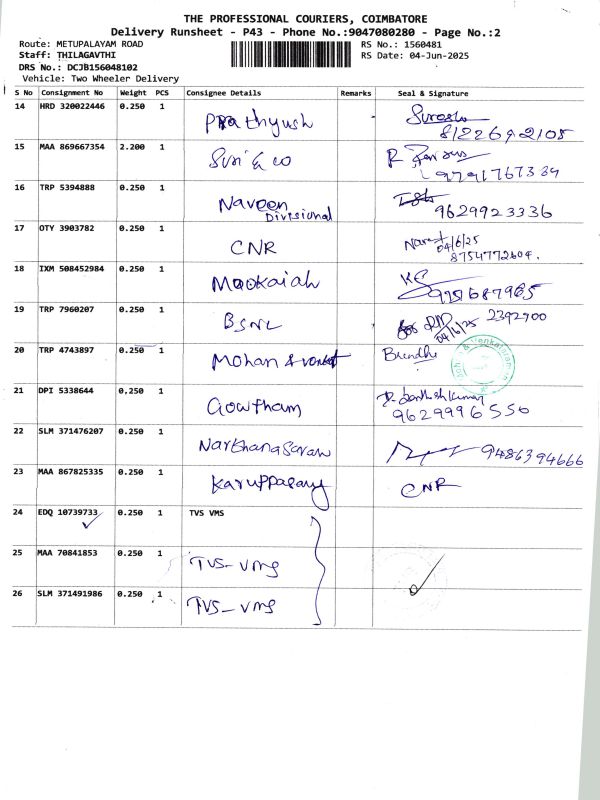 THE PROFESSIONAL COURIERS, COIMBATORE
Delivery Runsheet - P43 - Phone No.:9047080280 - Page No.:2
Route: METUPALAYAM ROAD
Staff: THILAGAVTHI
DRS No.: DCJB156048102
Vehicle: Two Wheeler Delivery
RS No.: 1560481
RS Date: 04-Jun-2025
S No Consignment No Weight PCS Consignee Details Remarks Seal & Signature
14 HRD 320022446 0.250 1 Prathyush Suresh
8122692105
15 MAA 869667354 2.200 1 Suri & co R
9791767339
16 TRP 5394888 0.250 1 Naveen
Divisional 9629923336
17 OTY 3903782 0.250 1 CNR
04/6/25
8754772604.
18 IXM 508452984 0.250 1 Mookaiah
9751687965
19 TRP 7960207 0.250 1 BSNL 2392700
04/6/25
20 TRP 4743897 0.250 1 Mohan & venkat Brindha
21 DPI 5338644 0.250 1 Gowtham
9629996550
22 SLM 371476207 0.250 1 Narthanasaraw 9486394666
23 MAA 867825335 0.250 1 Karuppasamy CNR
24 EDQ 10739733 0.250 1 TVS VMS
25 MAA 70841853 0.250 1 TVS-VMS
26 SLM 371491986 0.250 1 TVS-VMS